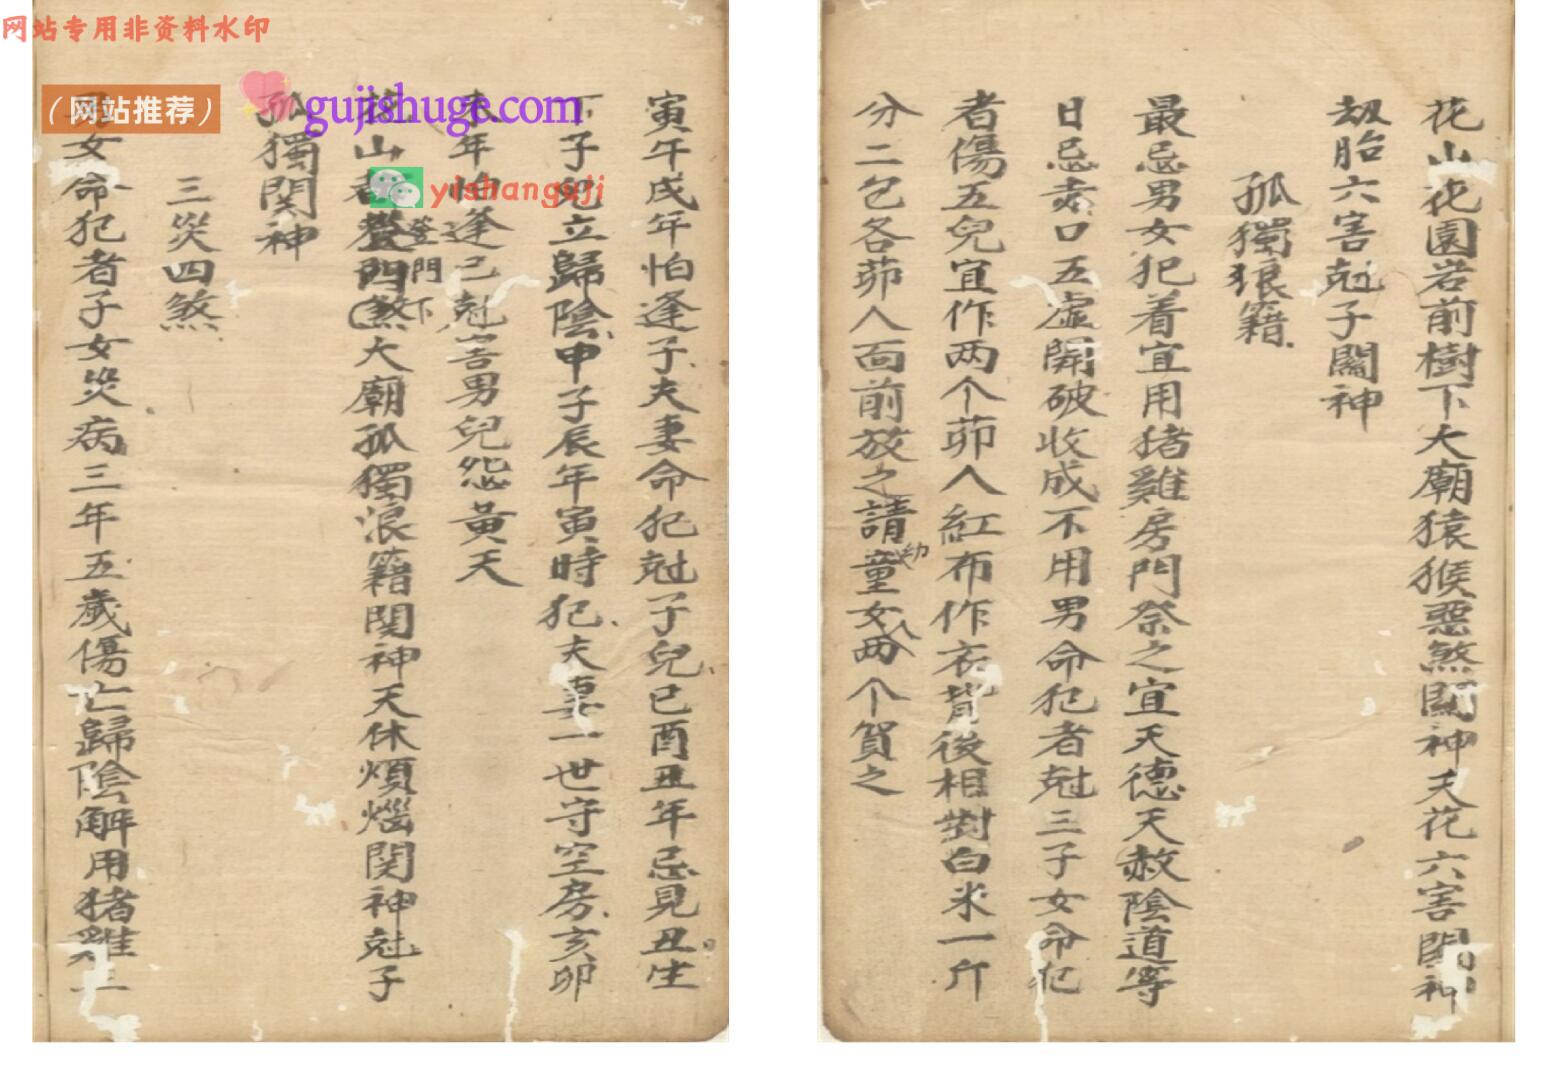 网站专用非资料水印
（网站推荐）
gujishuge.com
yishanguji
花山花園岩前樹下大廟猿猴惡煞關神天花六害關神
刼胎六害尅子關神
孤獨狼籍
最忌男女犯着宜用猪雞房門祭之宜天德天赦陰道等
日忌赤口五虛開破收成不用男命犯者尅三子女命犯
者傷五兒宜作两个茆人紅布作衣背後相對白米一斤
分二包各茆人面前放之請童幼女人两个賀之
寅午戌年怕逢子夫妻命犯尅子兒巳酉丑年忌見丑生
下子兒立歸陰申子辰年寅時犯夫妻一世守空房亥卯
未年怕逢己尅害男兒怨黄天
花山門煞大廟孤獨浪籍関神天休煩惱関神尅子
登門下
孤獨関神
三災四煞
男女命犯者子女災病三年五歲傷亡歸陰解用猪雞三